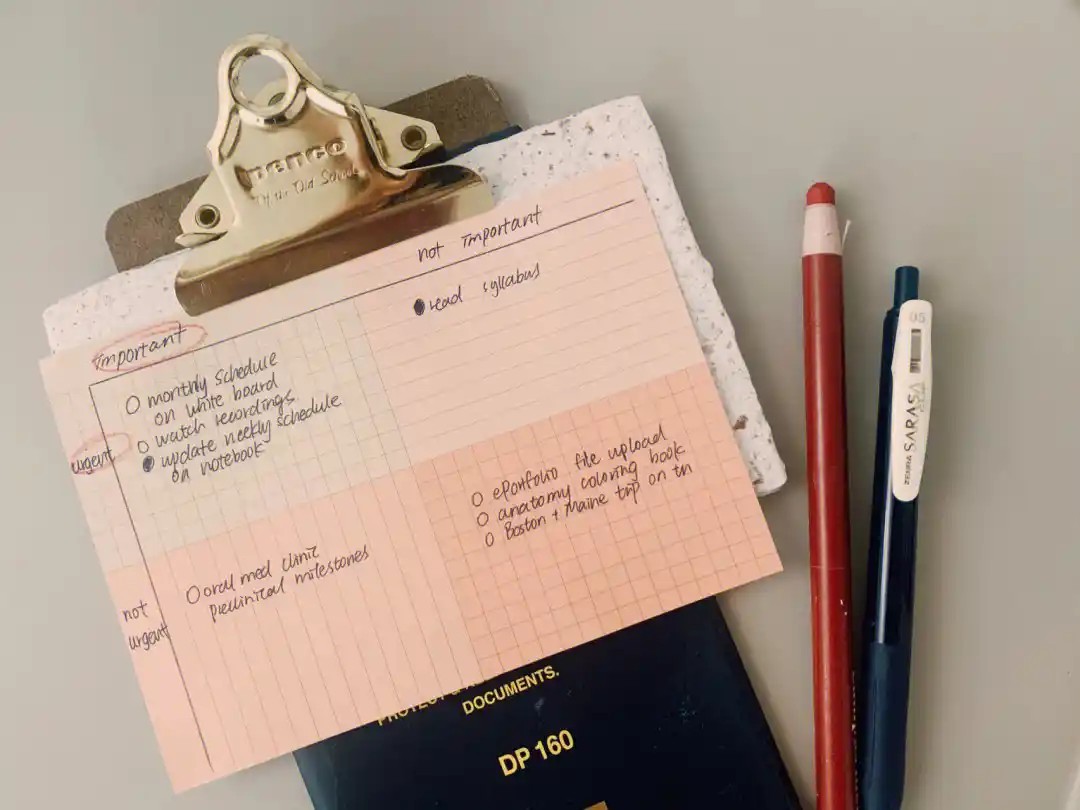 PENCO
not important
read syllabus
important
monthly schedule
on white board
watch recordings
update weekly schedule
on notebook
urgent
eportfolio file upload
anatomy coloring book
Boston + Maine trip on
oral med clinic
preclinical milestones
not
urgent
DOCUMENTS.
DP 160
05
ZEBRA SARASA